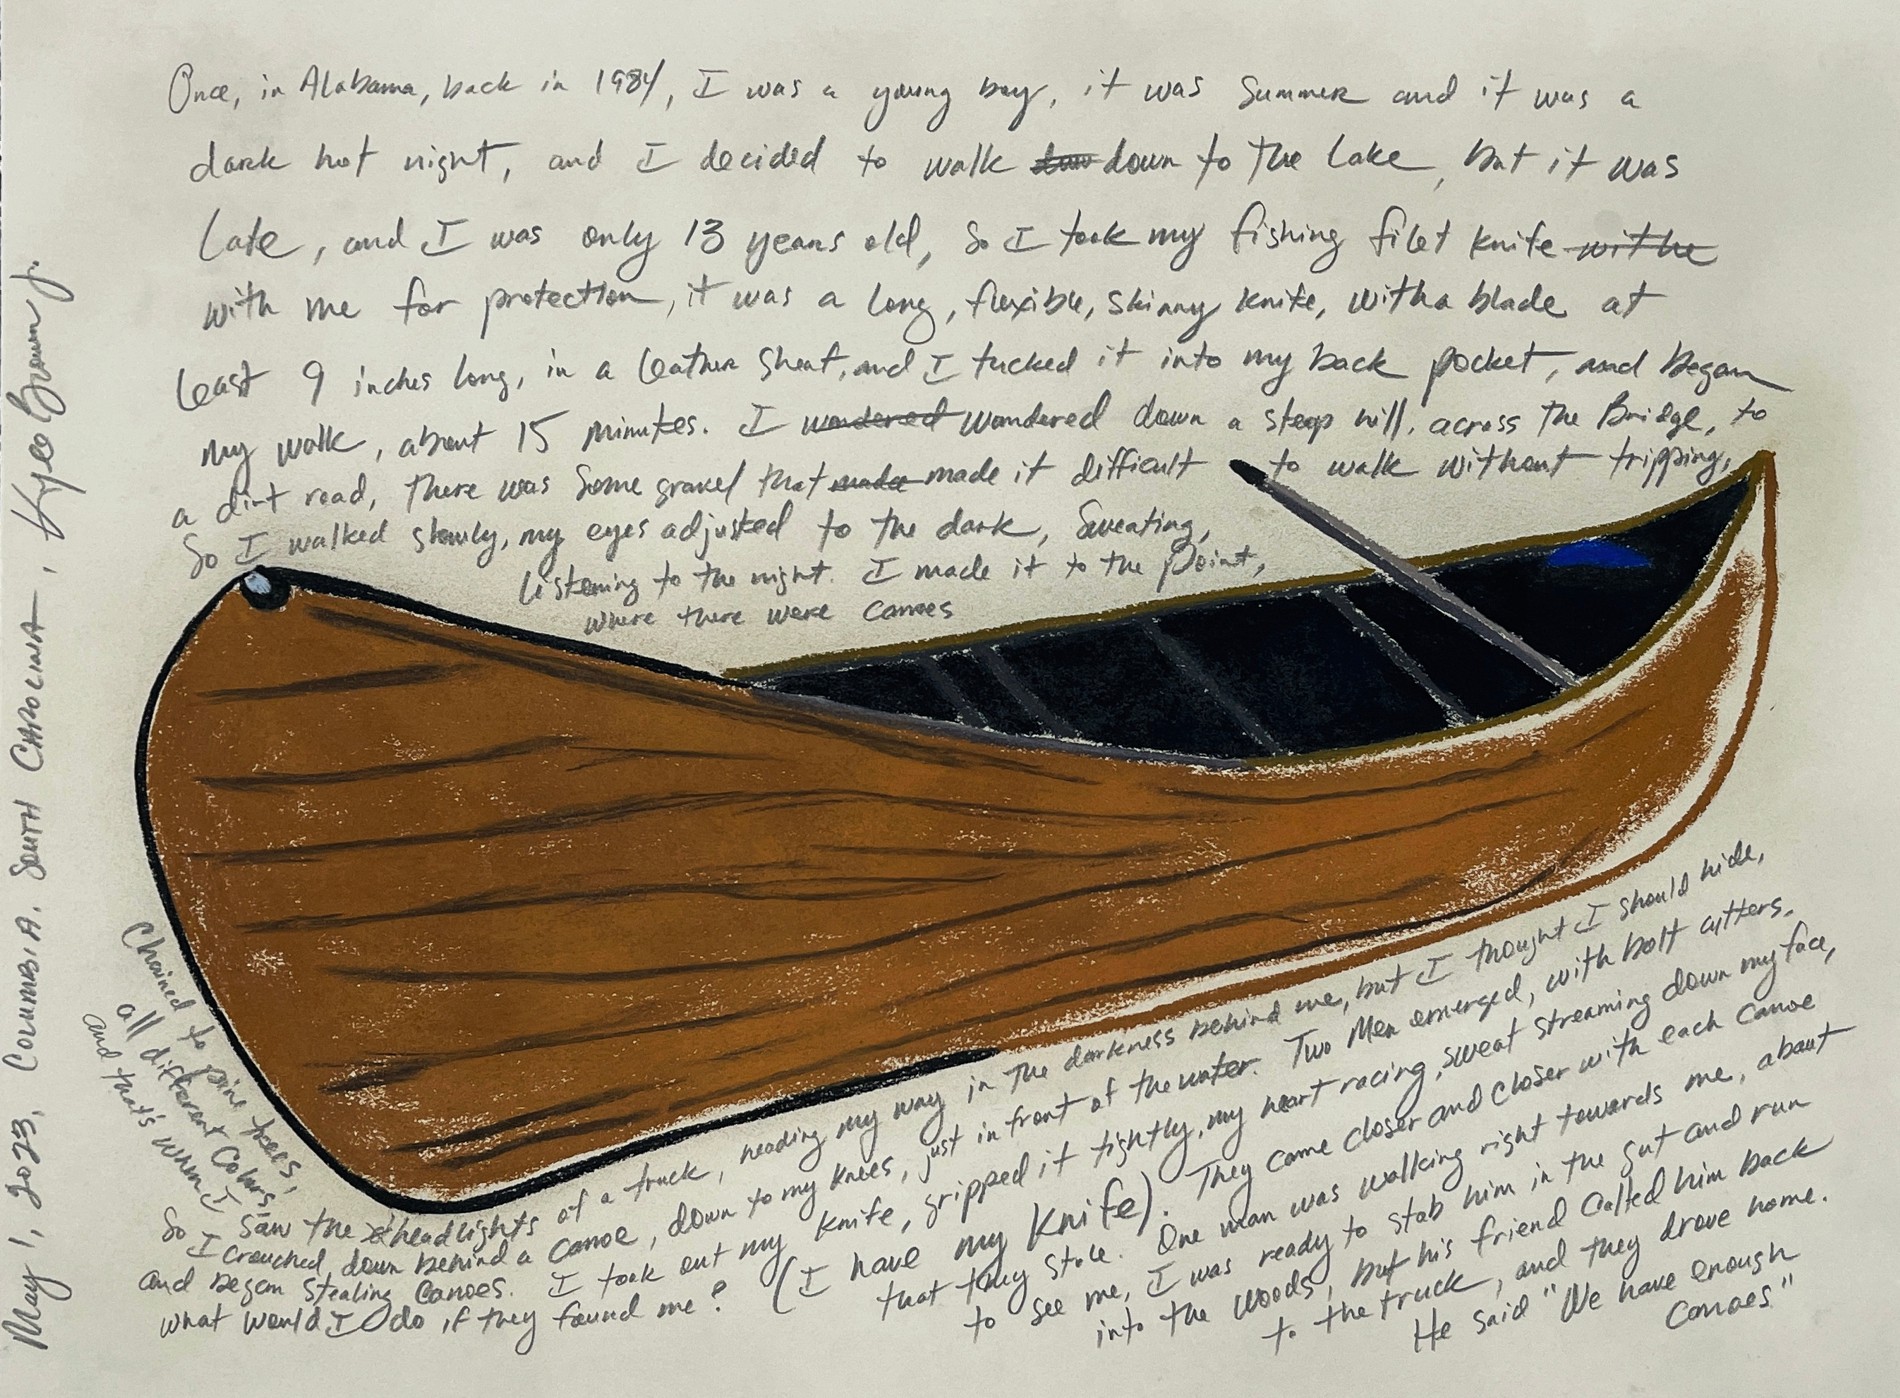 Once, in Alabama, back in 1984, I was a young boy, it was Summer and it was a
dark hot night, and I decided to walk dow down to the Lake, but it was
Late, and I was only 13 years old, So I took my fishing filet knife withe
with me for protection, it was a long, flexible, skinny knife, with a blade at
Least 9 inches long, in a leather sheat, and I tucked it into my back pocket, and began
my walk, about 15 minutes. I wandered wandered down a steep hill, across the Bridge, to
a dirt road, There was Some gravel that made made it difficult to walk without tripping,
So I walked slowly, my eyes adjusted to the dark, Sweating,
Listening to the night. I made it to the Point,
where there were Canoes
Chained to pine trees,
all different Colors,
and that's when I saw the headlights of a truck, heading my way in the darkness behind me, but I thought I should hide,
So I crouched down behind a canoe, down to my knees, just in front of the water. Two Men emerged, with bolt cutters.
and began stealing Canoes. I took out my knife, gripped it tightly, my heart racing, sweat streaming down my face,
what would I do if they found me? (I have my knife). They came closer and closer with each canoe
that they stole. One man was walking right towards me, about
to see me, I was ready to stab him in the gut and run
into the woods, but his friend called him back
to the truck, and they drove home.
He said "We have enough
Canoes"
May 1, 2023, Columbia, South Carolina,